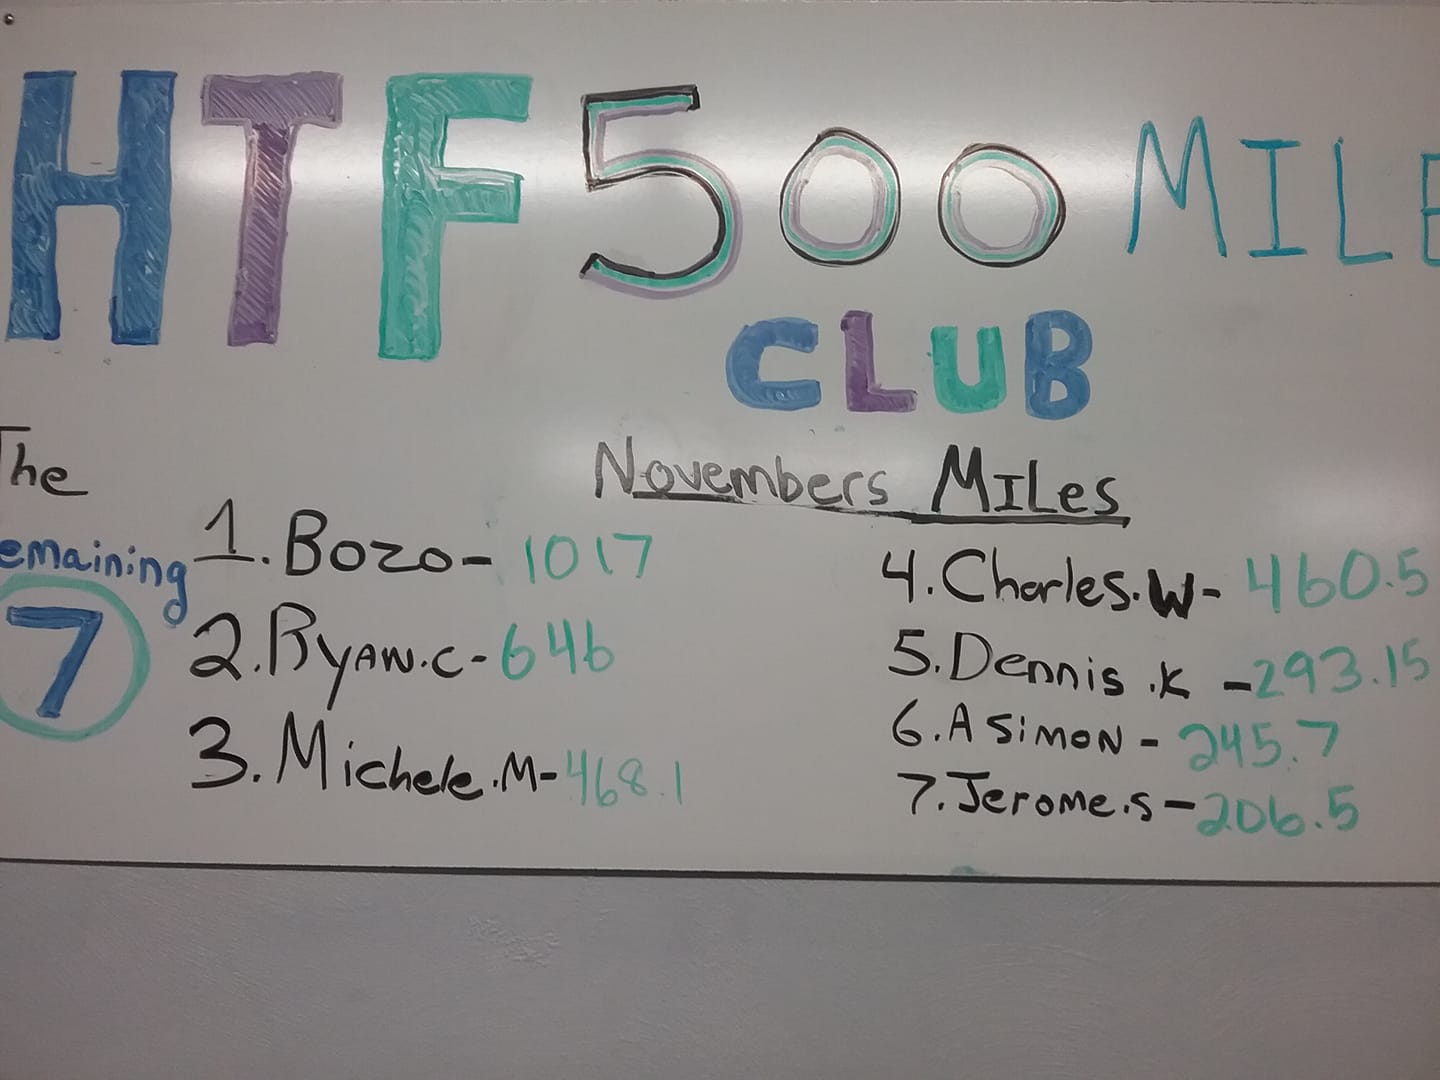 HTF 500 MILE
CLUB
Novembers MILes
The
emaining
7
1. Bozo - 1017
2. Ryan.C - 646
3. Michele.M - 468.1
4. Charles.W - 460.5
5. Dennis.K - 293.15
6. A Simon - 245.7
7. Jerome.S - 206.5